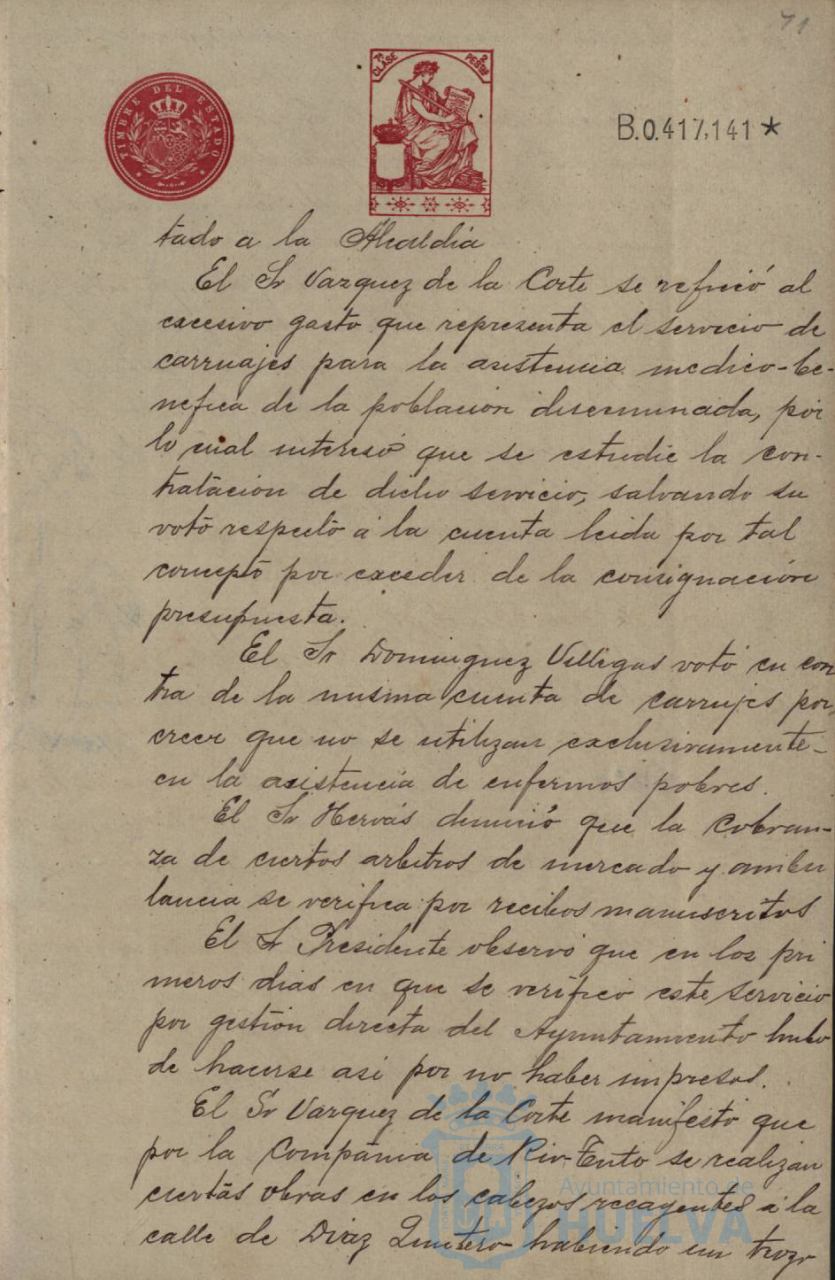 71
TIMBRE DEL ESTADO
7ª CLASE 2 PESETAS
B.0.417,141*
tado a la Alcaldia
El Sr Vazquez de la Corte se refirió al
excesivo gasto que representa el servicio de
carruajes para la asistencia medico-be-
nefica de la población diseminada, por
lo cual interesó que se estudie la con-
tratación de dicho servicio, salvando su
voto respecto á la cuenta leida por tal
concepto por exceder de la consignación
presupuesta.
El Sr Dominguez Villegas votó en con
tra de la misma cuenta de carrujes por
creer que no se utilizan exclusivamente-
en la asistencia de enfermos pobres.
El Sr Hervás denunció que la cobran-
za de ciertos arbitros de mercado y ambu
lancia se verifica por recibos manuscritos
El Sr Presidente observó que en los pri
meros dias en que se verificó este servicio
por gestión directa del Ayuntamiento hubo
de hacerse asi por no haber impresos.
El Sr Vazquez de la Corte manifestó que
por la Compañia de Rio-Tinto se realizan
ciertas obras en los cabezos recagentes á la
calle de Diaz Quintero habiendo un trozo
Ayuntamiento de
HUELVA